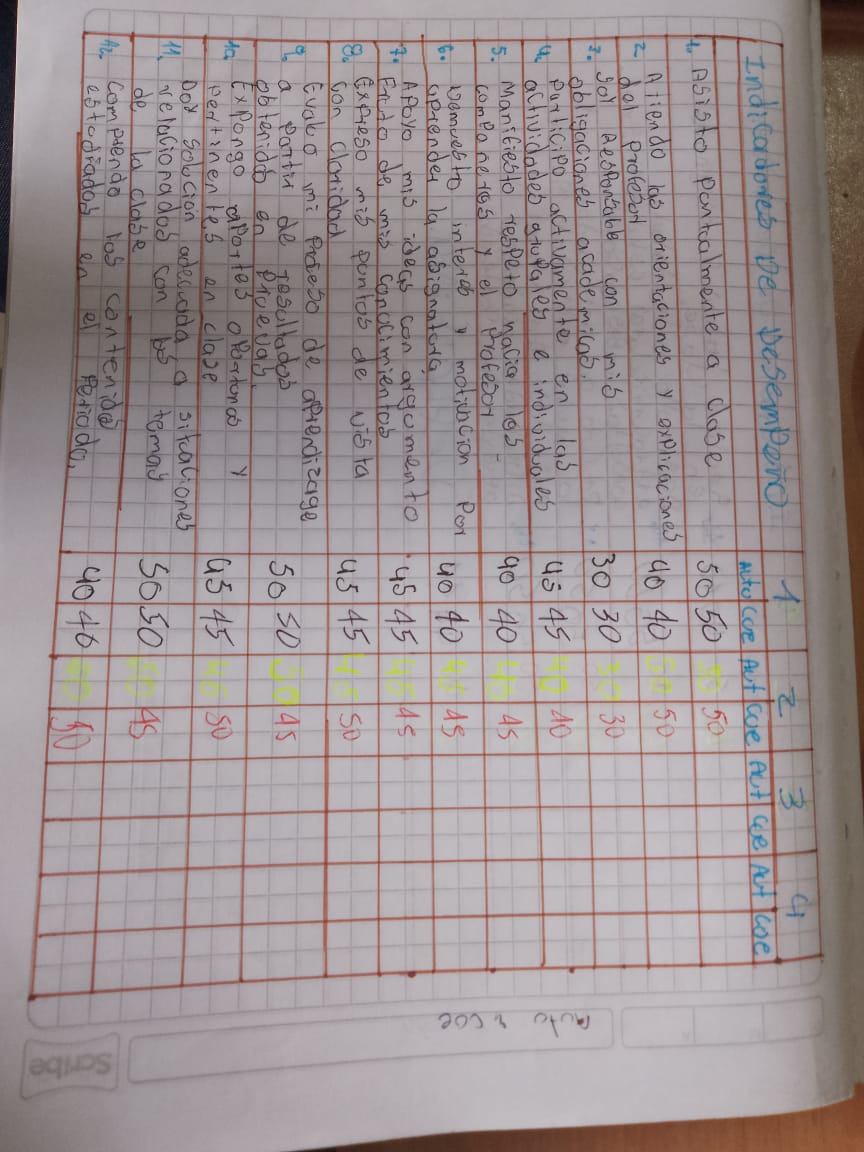 Indicadores De Desempeño 1 2 3 4
Auto coe Aut coe Aut coe Aut coe
1. Asisto puntualmente a clase 50 50 50 50
2 Atiendo las orientaciones y explicaciones
del profesor 40 40 50 50
3. soy Responsable con mis
obligaciones academicas. 30 30 30 30
4. participo activamente en las
actividades grupales e individuales 45 45 40 40
5. Manifiesto respeto hacia los
compañeros y el profesor 40 40 40 45
6. Demuestro interes y motivacion por
aprender la asignatura 40 40 45 45
7. Apoyo mis ideas con argumento
Fruto de mis conocimientos 45 45 45 45
8. Expreso mis puntos de vista
con claridad 45 45 45 50
9. Evaluo mi proceso de aprendizage
a partir de resultados
obtenidos en pruevas. 50 50 50 45
10 Expongo aportes oportunos y
pertinentes en clase 45 45 45 50
11. Doy solucion adecuada a situaciones
relacionados con los temas
de la clase 50 50 50 45
12. comprendo los contenidos
estudiados en el periodo. 40 40 50 50
Auto y coe
Scribe